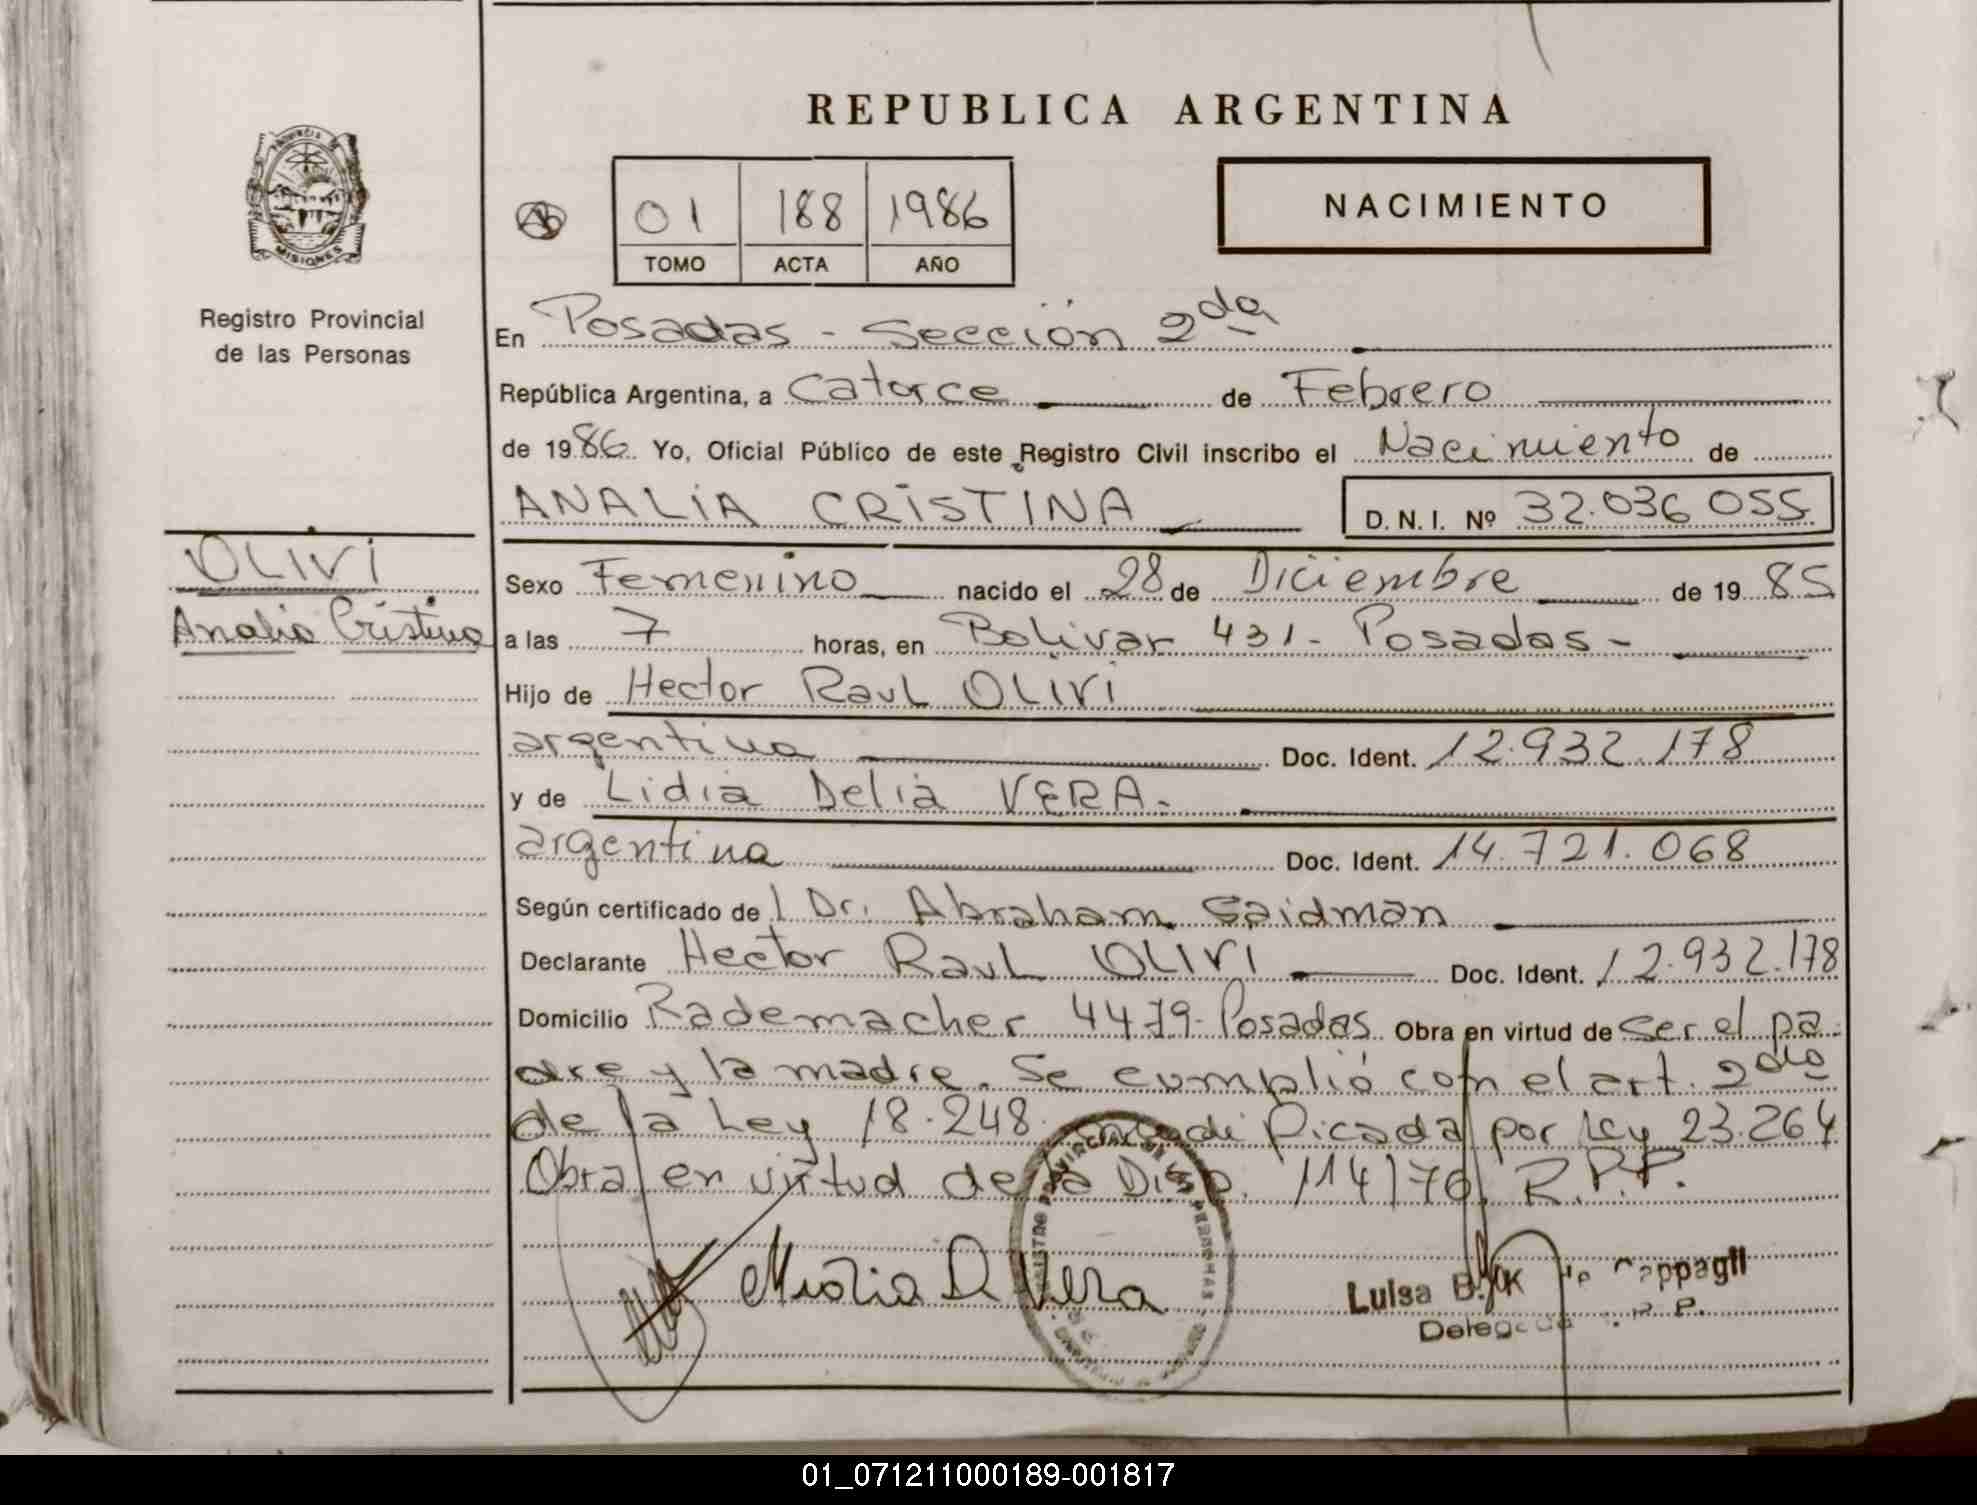 REPUBLICA ARGENTINA
PROVINCIA DE
MISIONES
Registro Provincial
de las Personas
01 188 1986
TOMO ACTA AÑO
NACIMIENTO
En Posadas - Sección 2da
República Argentina, a Catorce de Febrero
de 1986. Yo, Oficial Público de este Registro Civil inscribo el Nacimiento de
ANALIA CRISTINA D. N. I. Nº 32.036 055
OLIVI
Analia Cristina
Sexo Femenino nacido el 28 de Diciembre de 1985
a las 7 horas, en Bolivar 431 - Posadas -
Hijo de Hector Raul OLIVI
argentina Doc. Ident. 12.932.178
y de Lidia Delia VERA -
argentina Doc. Ident. 14.721.068
Según certificado de l Dr. Abraham Saidman
Declarante Hector Raul OLIVI Doc. Ident. 12.932.178
Domicilio Rademacher 4479 - Posadas Obra en virtud de ser el pa-
dre y la madre. Se cumplió con el art. 2do
de la Ley 18.248. Picada por Ley 23.264
Obra en virtud de la Disp. 114/76 R.P.P.
D Vera
Luisa B. de Cappagli
01_071211000189-001817